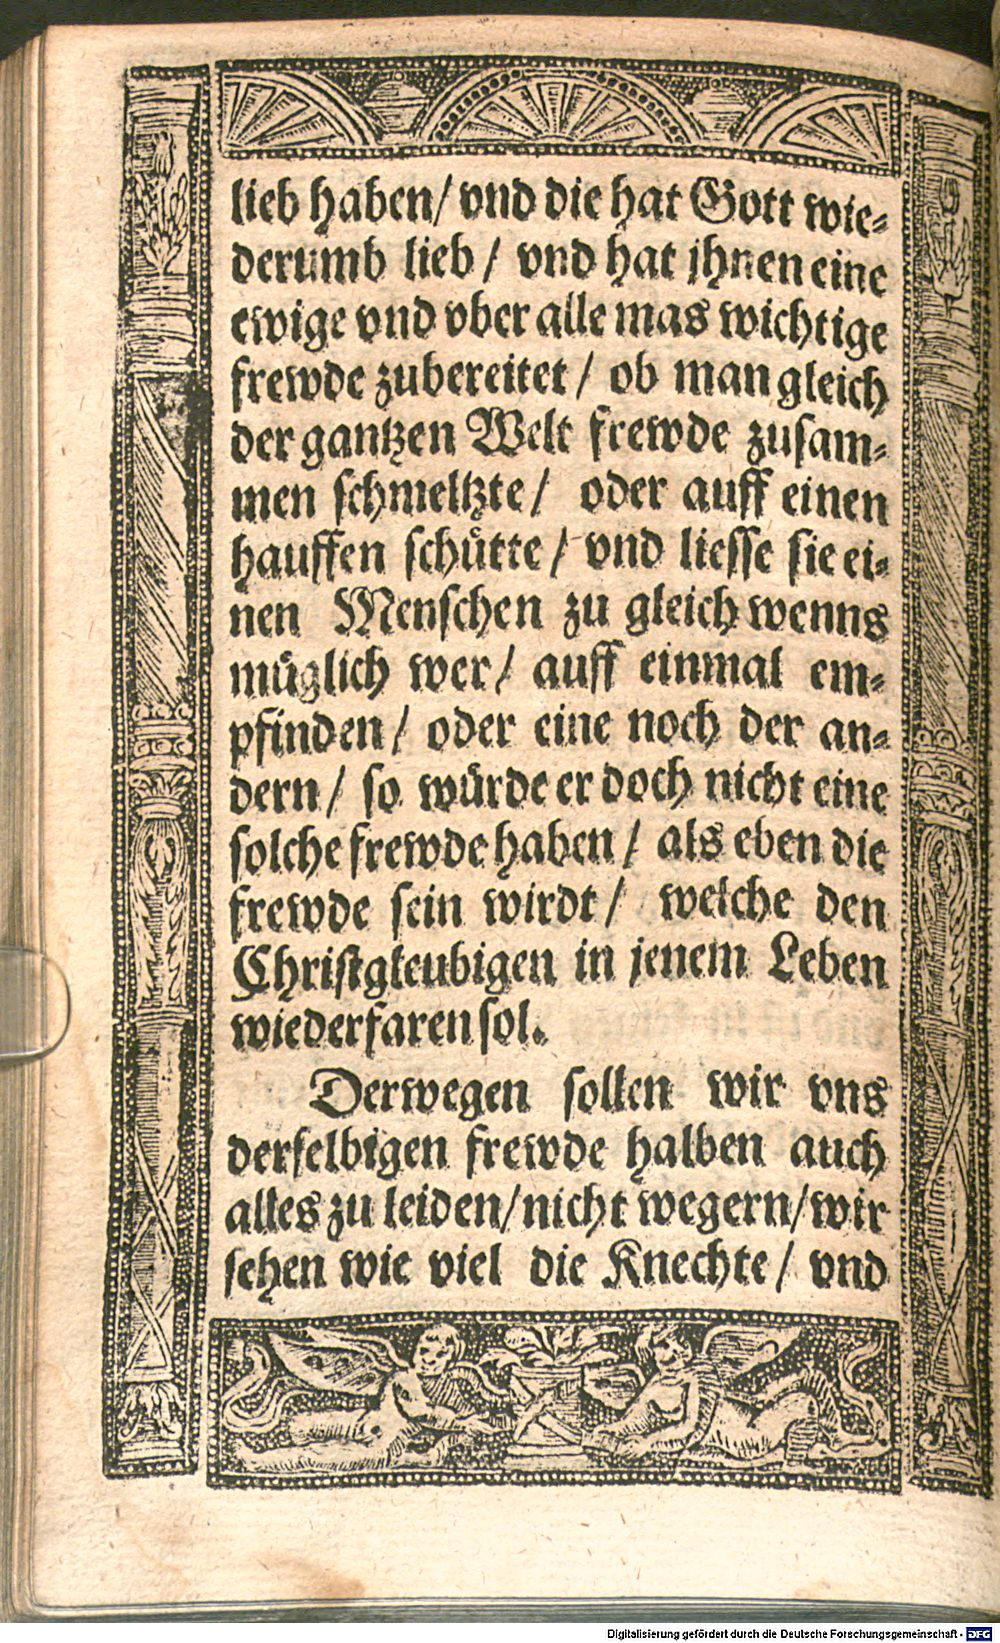 lieb haben/ vnd die hat Gott wie-
derumb lieb/ vnd hat jhnen eine
ewige vnd vber alle mas wichtige
frewde zubereitet/ ob man gleich
der gantzen Welt frewde zusam-
men schmeltzte/ oder auff einen
hauffen schütte/ vnd liesse sie ei-
nen Menschen zu gleich wenns
müglich wer/ auff einmal em-
pfinden/ oder eine noch der an-
dern/ so würde er doch nicht eine
solche frewde haben/ als eben die
frewde sein wirdt/ welche den
Christgleubigen in jenem Leben
wiederfaren sol.
Derwegen sollen wir vns
derselbigen frewde halben auch
alles zu leiden/ nicht wegern/ wir
sehen wie viel die Knechte/ vnd
Digitalisierung gefördert durch die Deutsche Forschungsgemeinschaft - DFG